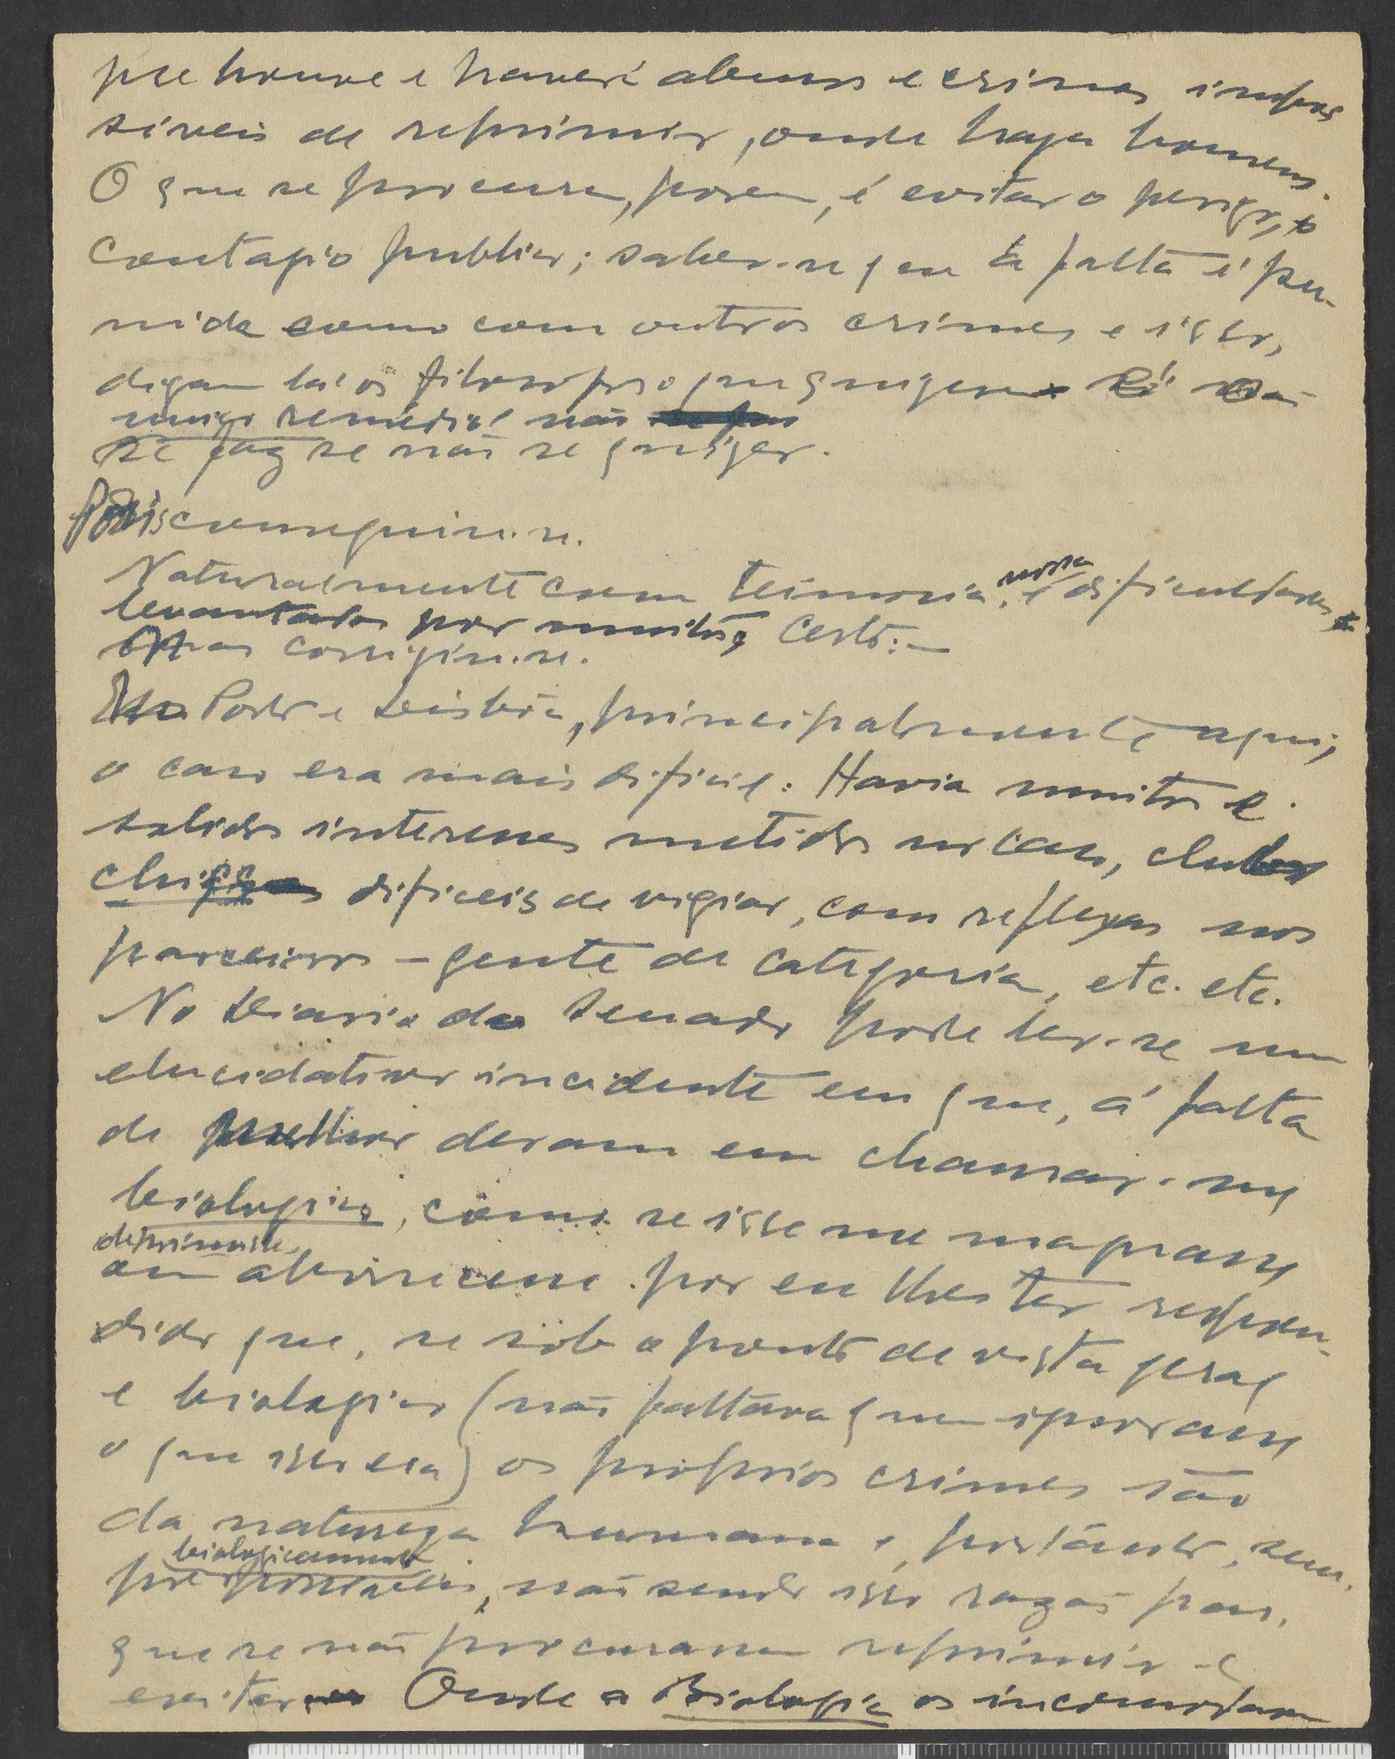 que houve e haverá abusos e crimes impos
siveis de reprimir, onde haja homens.
O que se procura, porem, é evitar o perigo, o
contagio publico; saber-se que a falta é pu-
nida como com outros crimes e isso,
digam lá os filosofos o que quizerem
unico remédio! não
se faz se não se quizer.
Pois conseguiu-se.
Naturalmente com teimosia, e dificuldades
levantadas por muitos, Certo:—
mas corrigiu-se.
No Porto e Lisboa, principalmente aqui,
o caso era mais dificil. Havia muitos e
solidos interesses metidos no caso, clubs
chics dificeis de vigiar, com reflexos nos
parceiros – gente de categoria, etc. etc.
No Diario do Senado pode ler-se um
elucidativo incidente em que, á falta
de melhor deram em chamar-me
biologico, como se isso me magoasse
deprimisse
ou aborrecesse por eu lhes ter respon-
dido que, se sob o ponto de vista geral
e biologico (não faltava quem ignorasse
o que isso era) os proprios crimes são
da natureza humana e, portanto, sem-
biologicamente
pre possiveis, não sendo isso razão para
que se não procurassem reprimir e
evitar. Onde a Biologia os incomodam